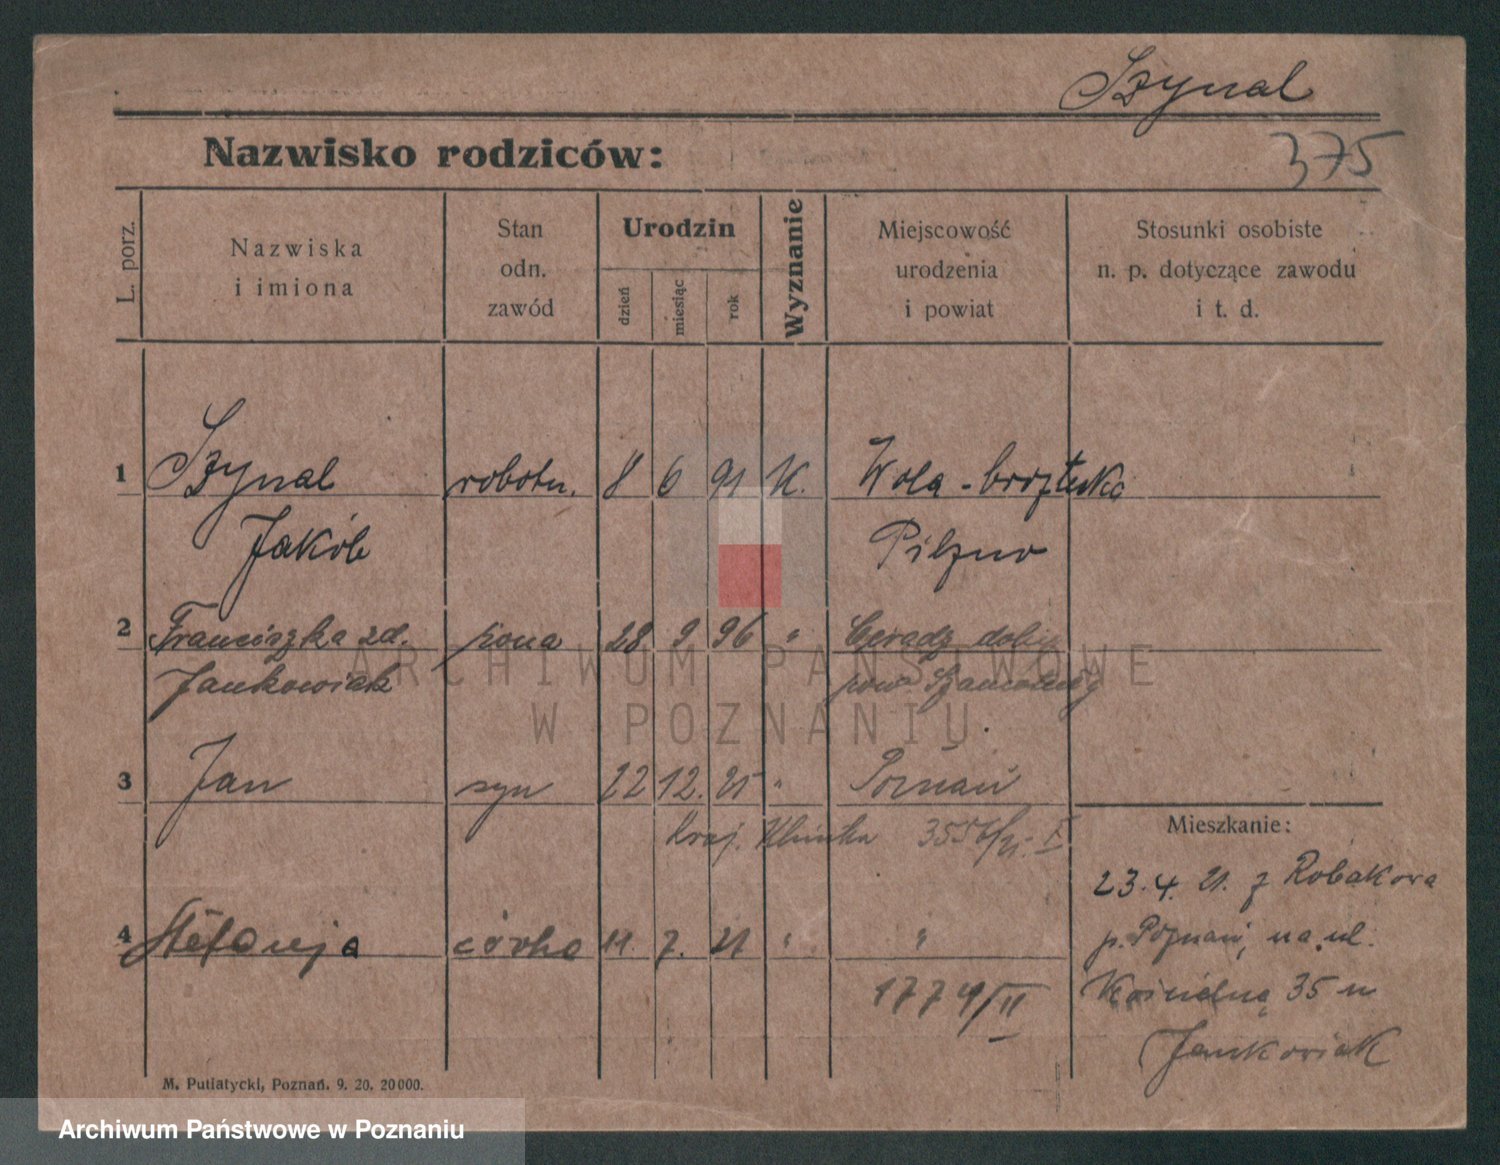 Szynal
375
Nazwisko rodziców:
L. porz.
Nazwiska
i imiona
Stan
odn.
zawód
Urodzin
dzień
miesiąc
rok
Wyznanie
Miejscowość
urodzenia
i powiat
Stosunki osobiste
n. p. dotyczące zawodu
i t. d.
1 Szynal robotn. 8 6 91 K. Wola-brzostecka
Jakób Pilzno
2 Franciszka zd. żona 28 9 96 " Ceradz
Jankowiak pow
3 Jan syn 22 12. "  Poznań
Mieszkanie:
23.4. 21. z Robakowa
4 Stefanja córka 11. 7. 21 " "
p. Poznań, na ul.
1774/II
35
Jankowiak
M. Putiatycki, Poznań. 9. 20. 20000.
ARCHIWUM PAŃSTWOWE
W POZNANIU
Archiwum Państwowe w Poznaniu